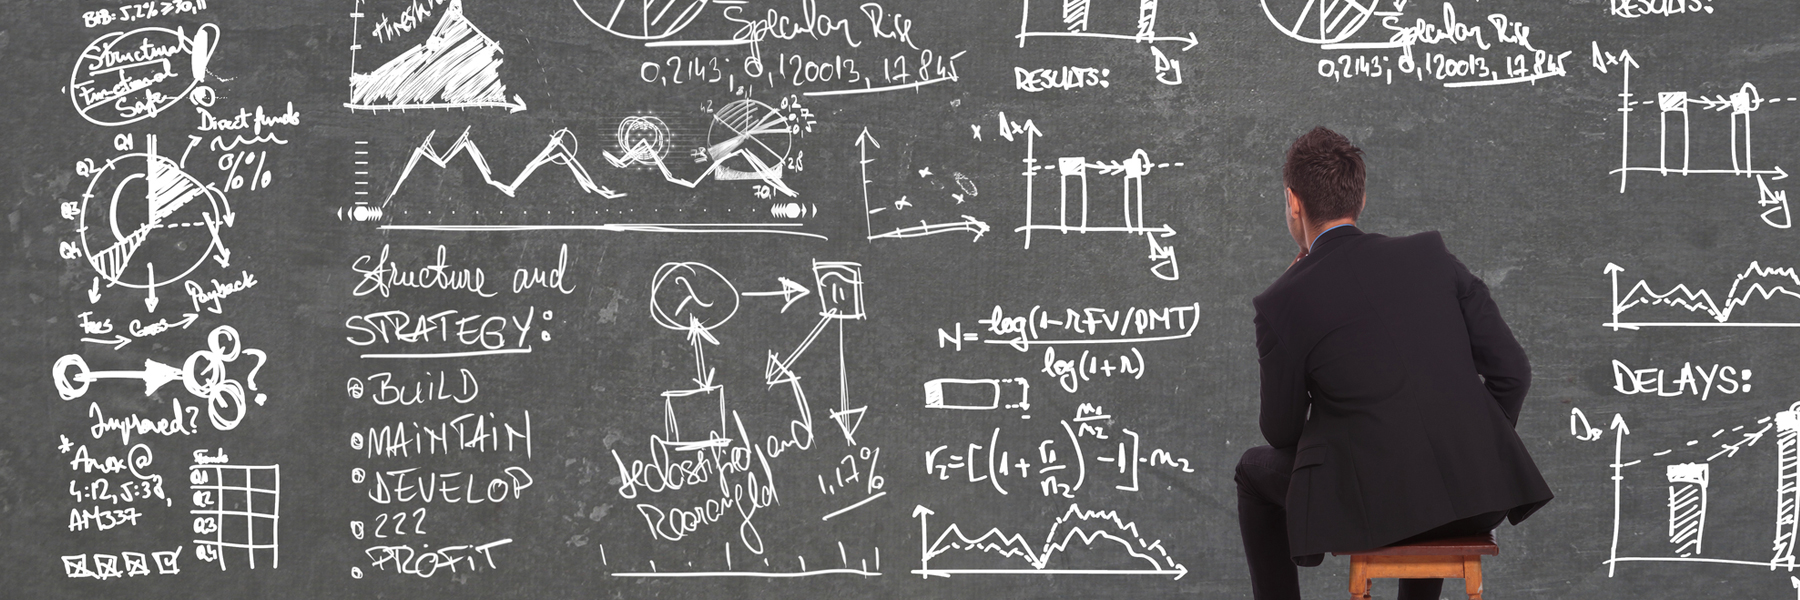 Structural
Functional
Direct funds
Q1
%%
Q2
Q3
Q4
Payback
Fees
?
Improved?
* Amox@
4:12, 5:38,
AM337
Funds
Q1
Q2
Q3
Q4
threshold
Specular Rise
0,2143; 0,120013, 17 845
Structure and
STRATEGY:
BUILD
MAINTAIN
DEVELOP
222
PROFIT
Declassified and
Rearranged
1,17%
Δy
RESULTS:
Δx
Δy
N= -log(1-rFV/PMT)
log(1+r)
r₂=[(1+r₁/n₂)^(n₁/n₂)-1]·n₂
Specular Rise
0,2143; 0,120013, 17 845
RESULTS:
Δx
Δy
DELAYS: